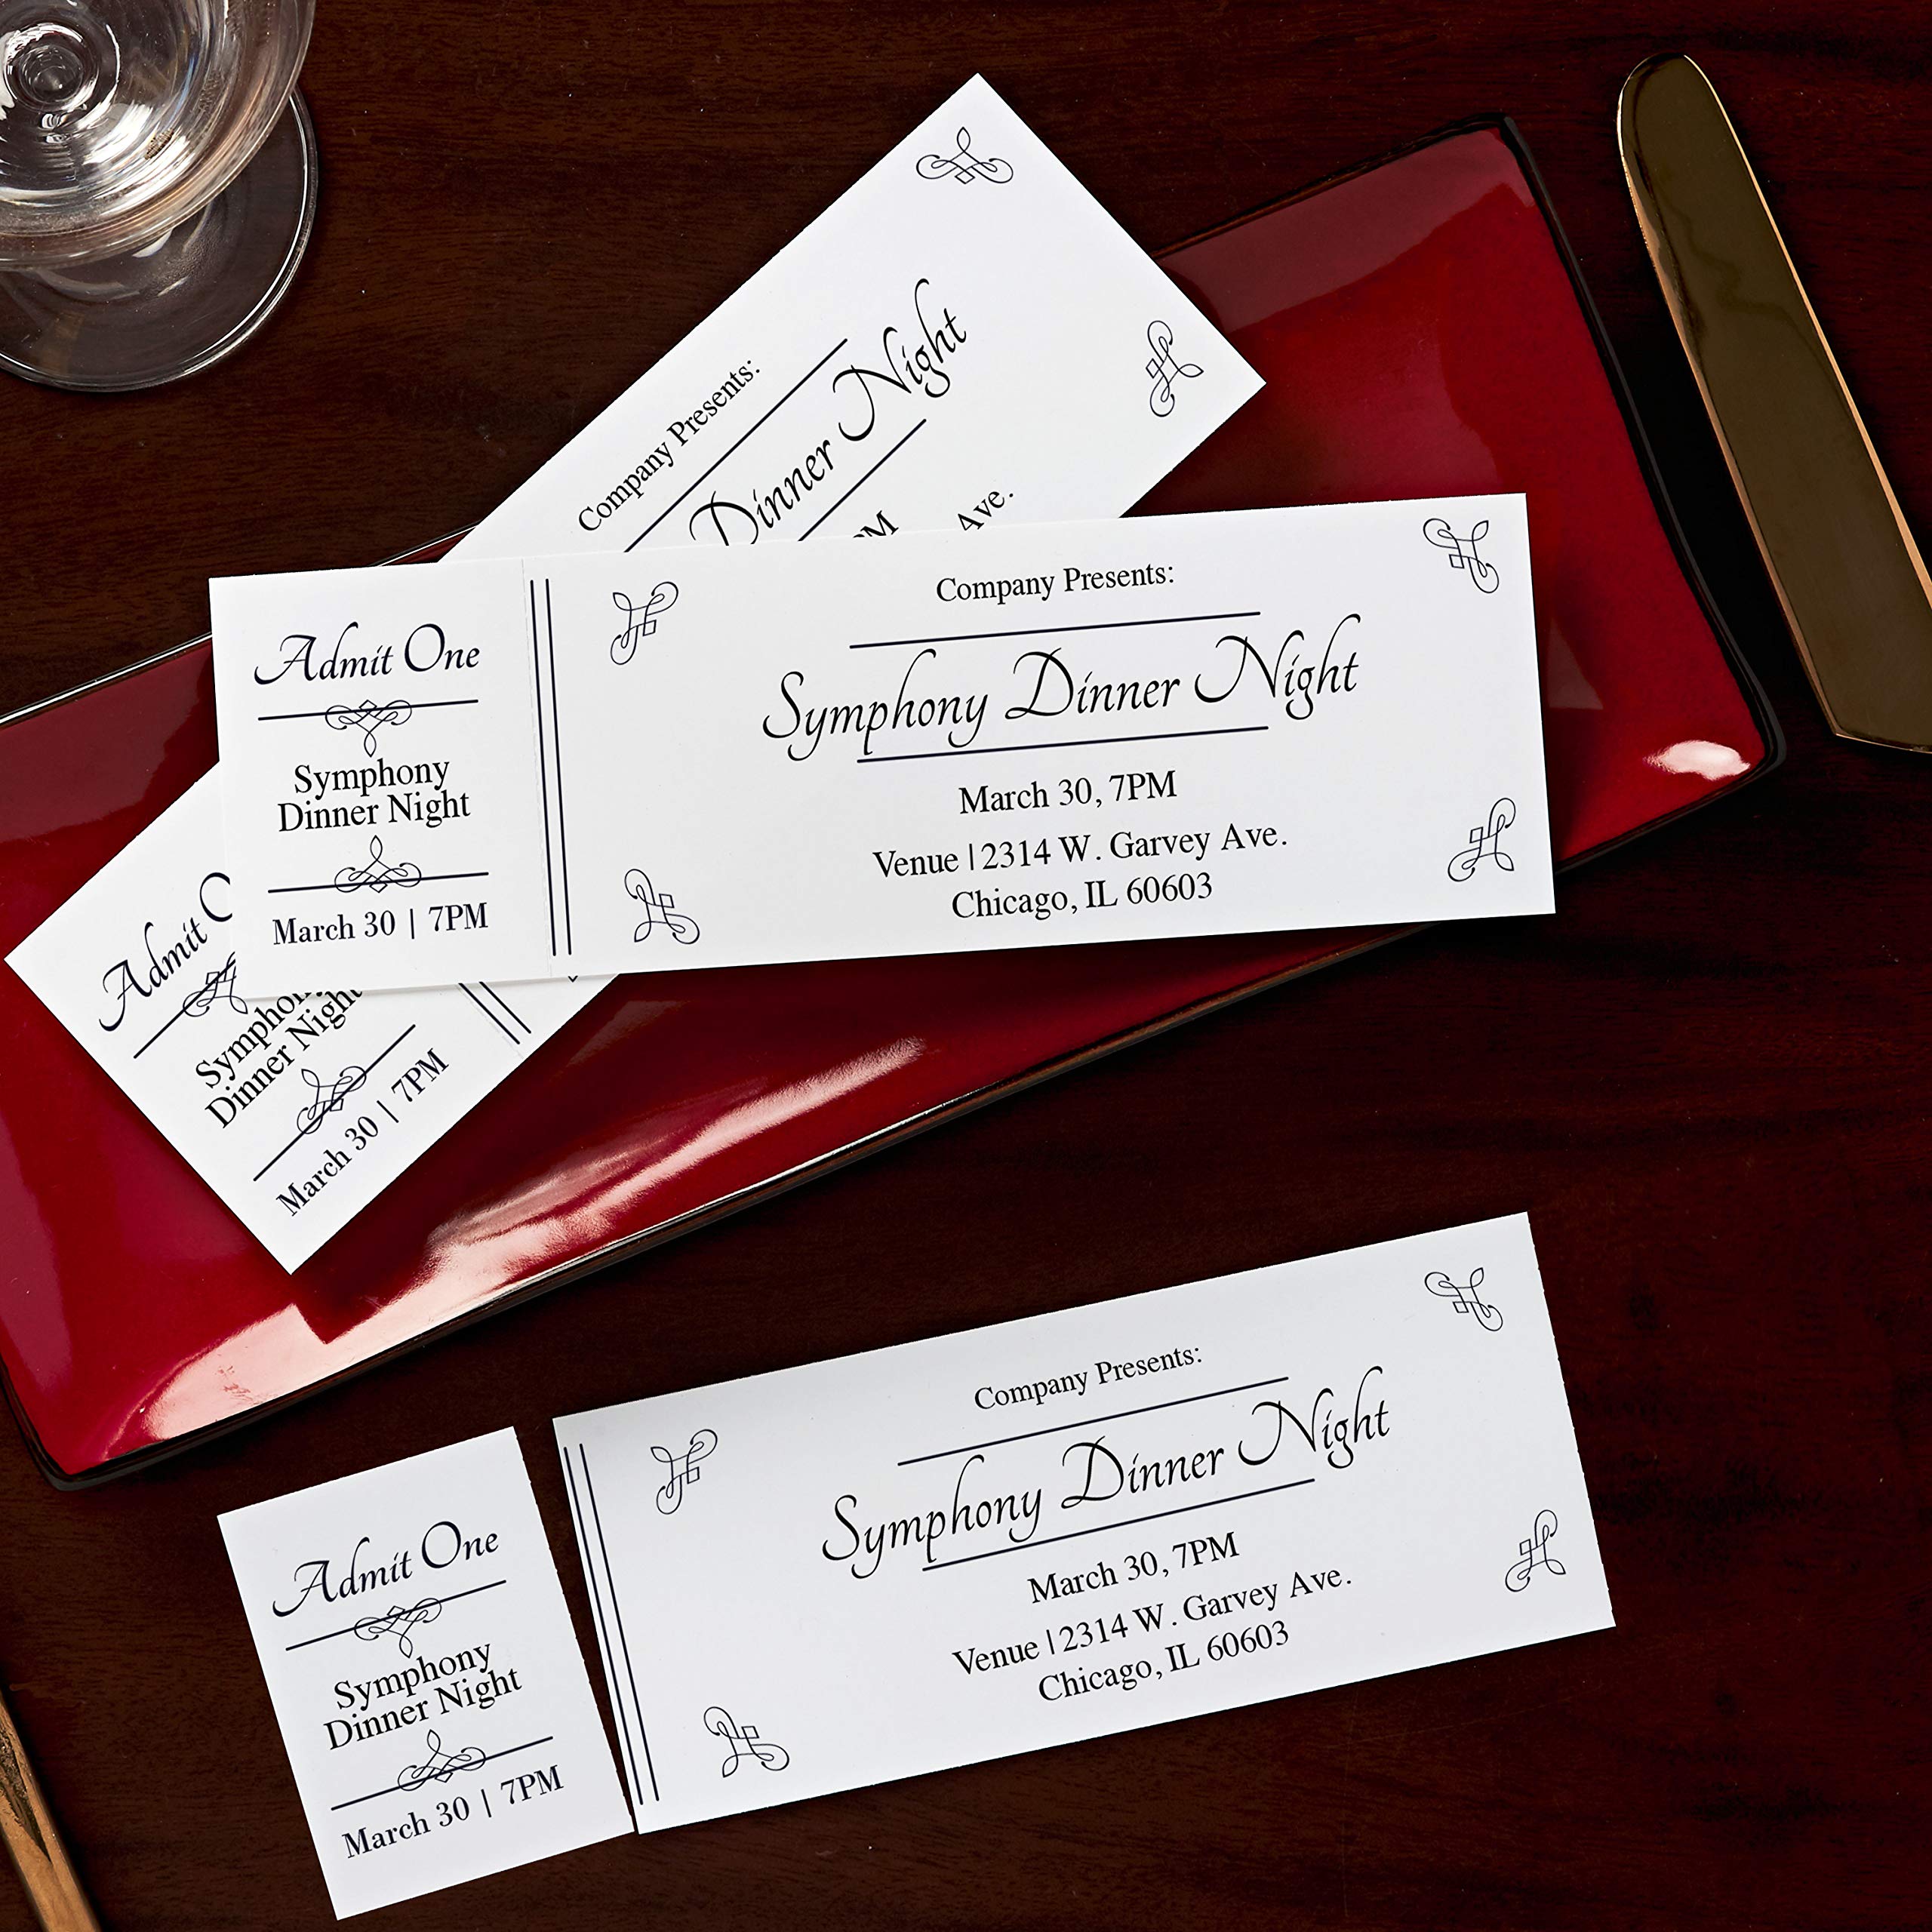 Company Presents:
Dinner Night
PM
Ave.
Admit One
Symphony
Dinner Night
March 30 | 7PM
Company Presents:
Symphony Dinner Night
March 30, 7PM
Venue | 2314 W. Garvey Ave.
Chicago, IL 60603
Admit
Dinner Night
March 30 | 7PM
Admit One
Symphony
Dinner Night
March 30 | 7PM
Company Presents:
Symphony Dinner Night
March 30, 7PM
Venue | 2314 W. Garvey Ave.
Chicago, IL 60603